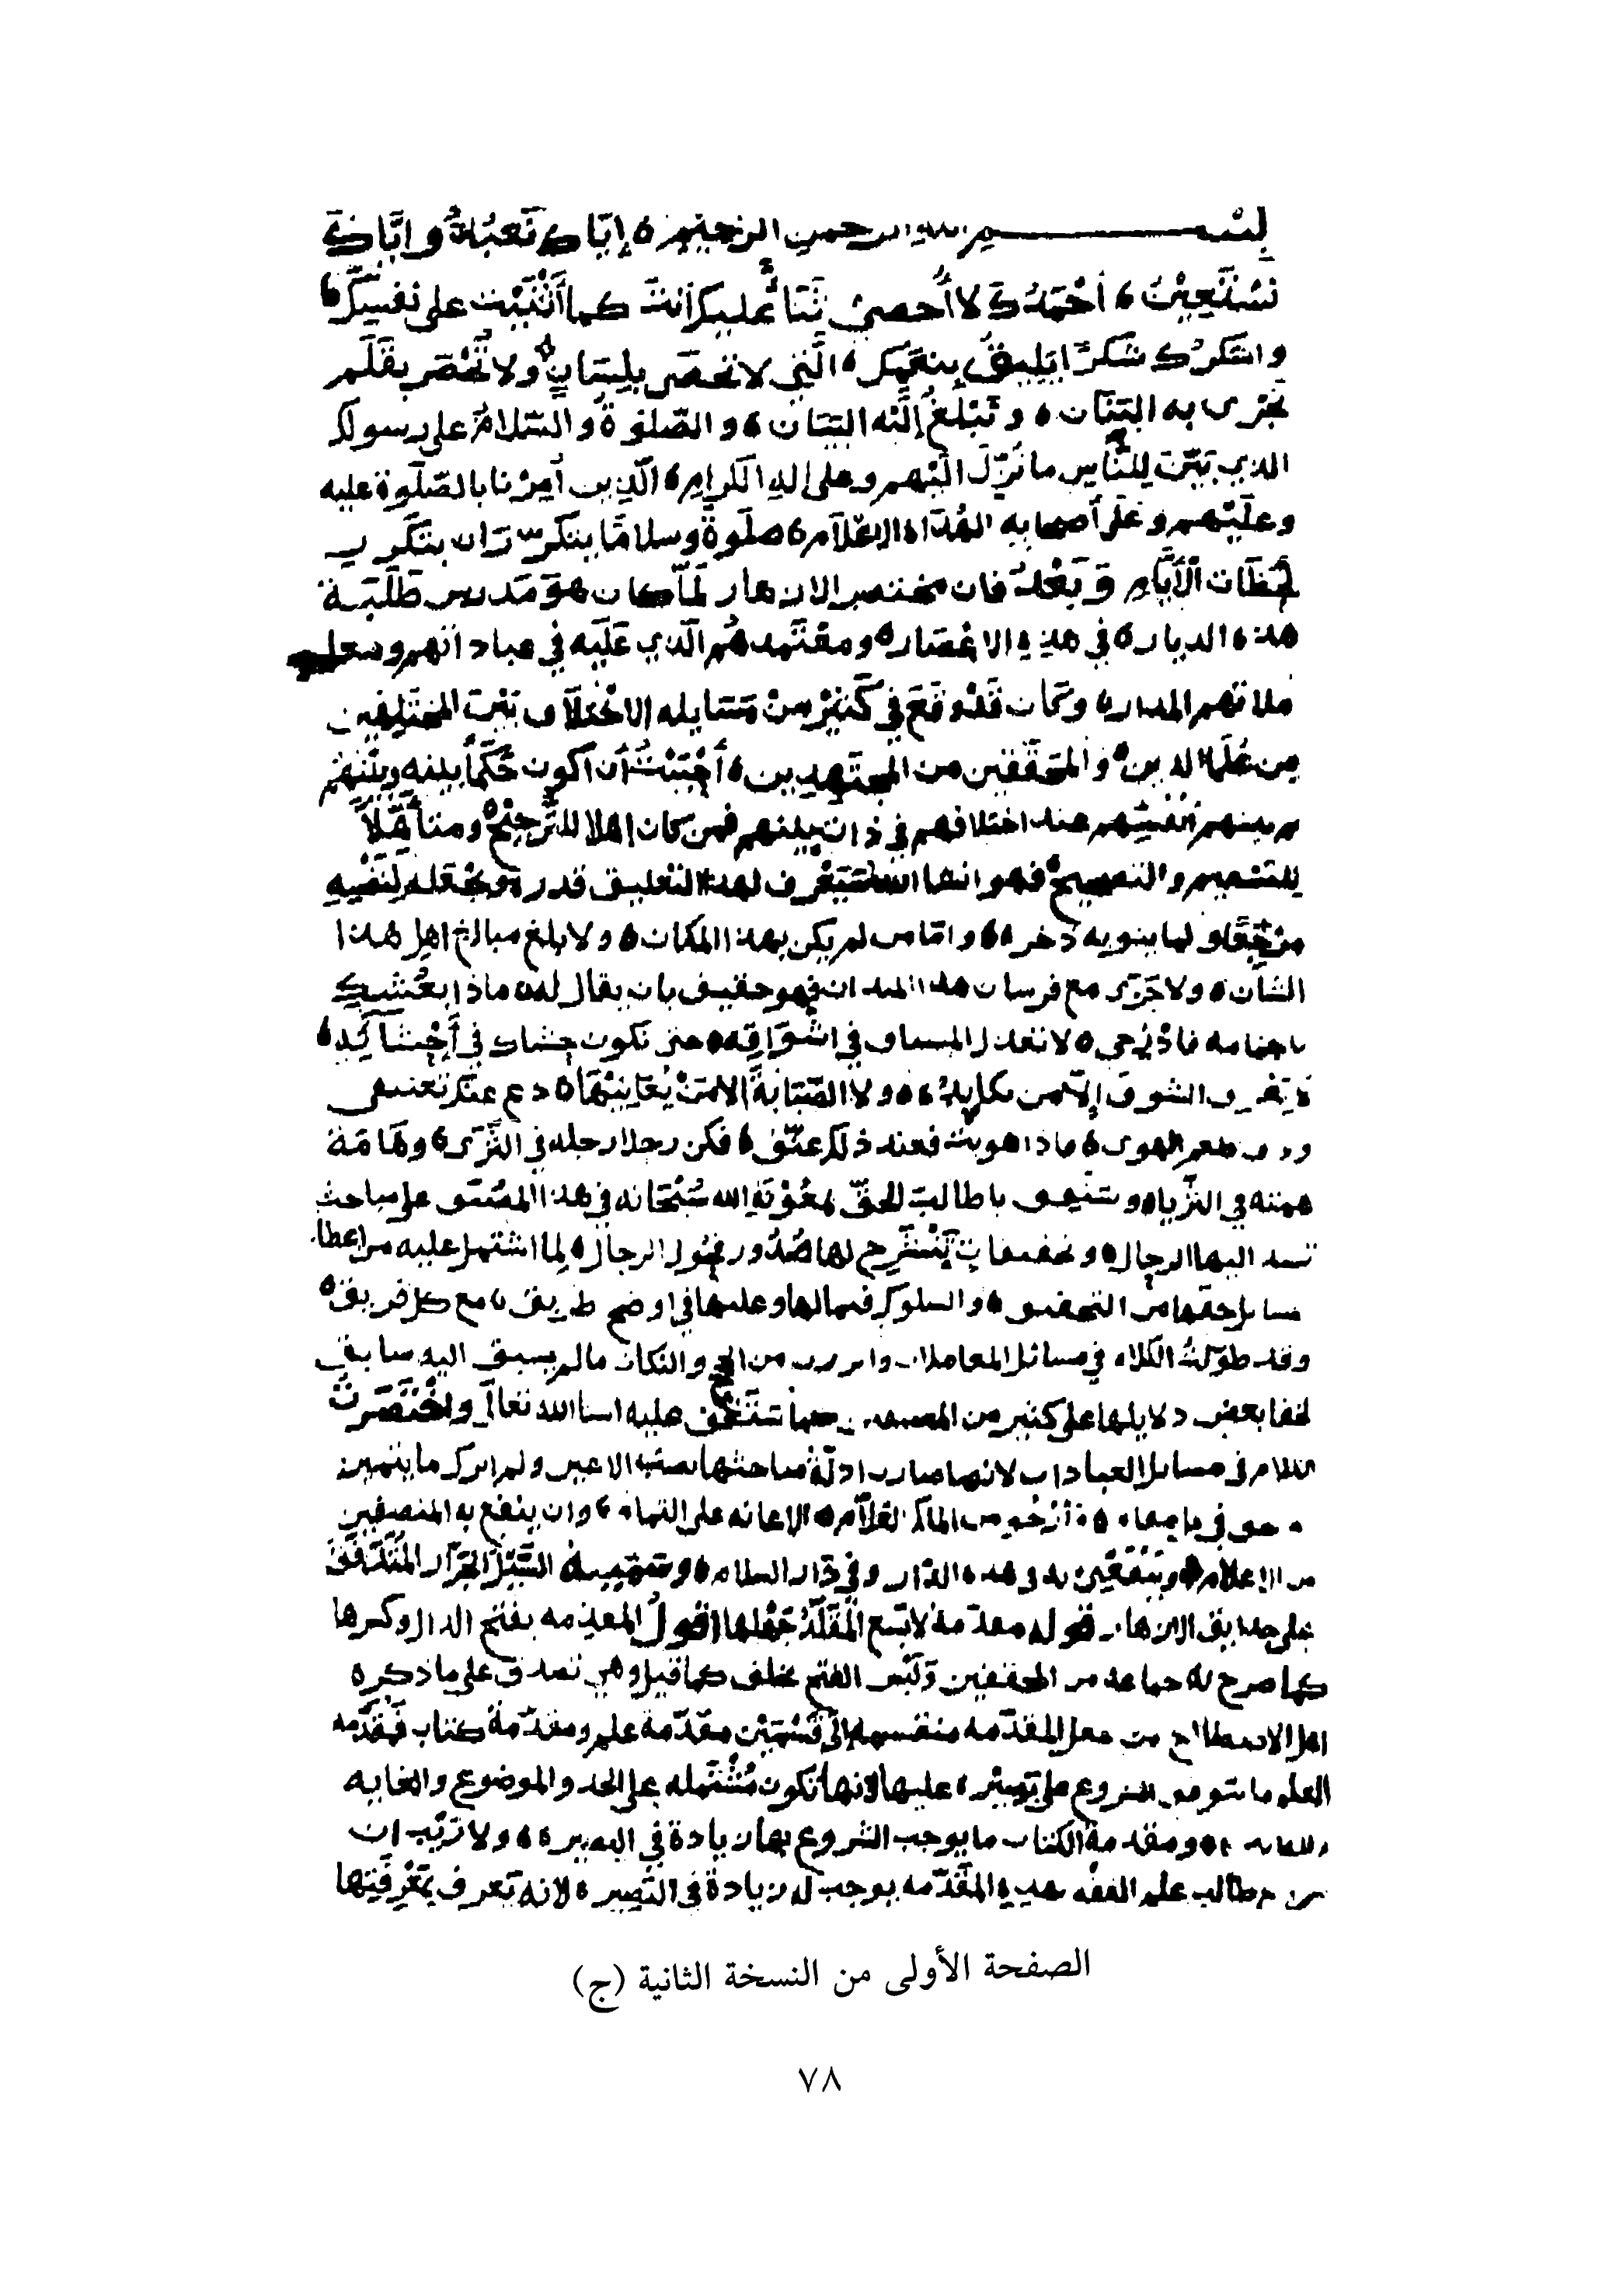 بسم الله الرحمن الرحيم ٥ إيّاك نَعبُدُ وايَّاكَ
نَسْتَعِيْنُ ٥ أَحْمَدُكَ لا أُحصي ثَنَاءً عليك أنتَ كما أَثْنَيْتَ على نفسِكَ ٥
واشكرُكَ شكرًا يَلِيقُ بِنِعَمِكَ ٥ الَّتي لا تنحصر بلِسَانٍ ولا تُحْصَر بقَلَمٍ
يَجْرِى به البَنَان ٥ وتَبْلغُ إِلَيْه البَيَان ٥ والصّلوةُ والسّلامُ على رسولك
الذي بَيَّنَ لِلنَّاسِ ما نُزِّلَ الَيْهم وعلى الهِ الكرام ٥ الّذين أُمِرْنا بالصّلوة عليه
وعليْهم وعَلَى أصحابه الهُدَاة الاعْلام ٥ صلوةً وسلامًا يتكرّران بتكرّر
لَحَظَات الأَيَّام وَبَعْدُ فان مختصر الازهار لَمَّا كان هو مَدرس طَلَبَة
هذه الديار ٥ في هذه الاعْصَار ٥ ومعْتَمدهُم الَّذي عَلَيه في عباداتهم و
معاملاتهم المدار ٥ وكان قَدْ وَقَعَ في كَثيْرٍ منْ مَسَايله الاخْتلاف بَيْنَ المختلِفين
مِن عُلَماء الدين ٥ والمحَقّقين من المجتهدين ٥ أَحْبَبْتُ أن اكون حَكَمًا بينه وبَيْنَهُم
ثم بينهم أَنْفُسهم عند اختلافهم في ذات بينهم فمن كان اهلا للتَّرجِيْح ٥ ومتأَهِّلاً
للتسقيم والتصحيح ٥ فهو ان شاء الله سَيَعْرف لهذا التعليق قدرَه ويجْعَله لِنَفْسِه
مَرْجِعًا ولما ينوبه ذُخره ٥ واما من لم يكن بهذا المكان ٥ ولا بلغ مبالغ اهل هذا
الشان ٥ ولا جَرَى مع فرسان هذا الميدان فهو حقيق بان يقال له ماذا بعُشّك
يا حمامه فادْرُجي ٥ لا تعذل المشتاق في اشْوَاقِه ٥ حتى تكون حشاك في أَحْشَائِه ٥
لا يَعْرِف الشوقَ إلاّ من يكابِدُهُ ٥ ولا الصّبَابةَ الا مَنْ يُعَانِيْهَا ٥ دع عنك تعنيفي
وذق طعم الهوى ٥ فاذا هويت فعند ذلك عنّف ٥ فكن رجلا رجله في الثَّرَى ٥ وهَامَة
همته في الثُّريا ٥ وستقف يا طالبَ الحقّ بمعُوْنَةِ الله سُبْحَانه في هذا المصنّف على مباحث
تشد اليها الرحال ٥ وتحقيقات يَنْشَرِح لها صُدُور فُحُول الرجال ٥ لِما اشتمل عليه من اعطاء
المسايل حقها من التحقيق ٥ والسلوك فيما لها وعليها في اوضح طريق ٥ مع كل فريق ٥
وقد طوّلتُ الكلام في مسائل المعاملات واوردت من الحجج والنكات ما لم يسبق اليه سابق
لخفا بعض دلايلها على كثير من المصنفين كما سَتَقف عليه ان شاء الله تعالى واخْتَصَرتُ
الكلام في مسايل العبادات لانها صارت ادلّة مباحثها نصب الاعين ولم اترك ما يتعين
على جدايق الازهار قوله مقدّمة لا يَسَع المُقَلِّدُ جَهْلها اقولُ المقدّمه بفتح الدال وكسرها
كما صرح به جماعة من المحققين وَلَيْس الفتح بخلف كما قيل وهي تصدق على ما ذكره
اهل الاصطلاح من جعل المقدّمه منقسمه إلى قسْمَيْن مقدّمة علم ومقدّمة كتاب فمقدّمه
العلم ما يتوقف الشروع على بصيْره عليها لانها تكون مُشْتَمله على الحد والموضوع والغايه
٥ ومقدمة الكتاب ما يوجب الشروع بها زيادة في البصيره ٥ ولا رَيْب ان
من مطالب علم الفقه هذه المقدّمه يوجب له زيادة في البَصِيره لانه يَعرف بمَعْرِفَتِها
الصفحة الأولى من النسخة الثانية (ج)
٧٨